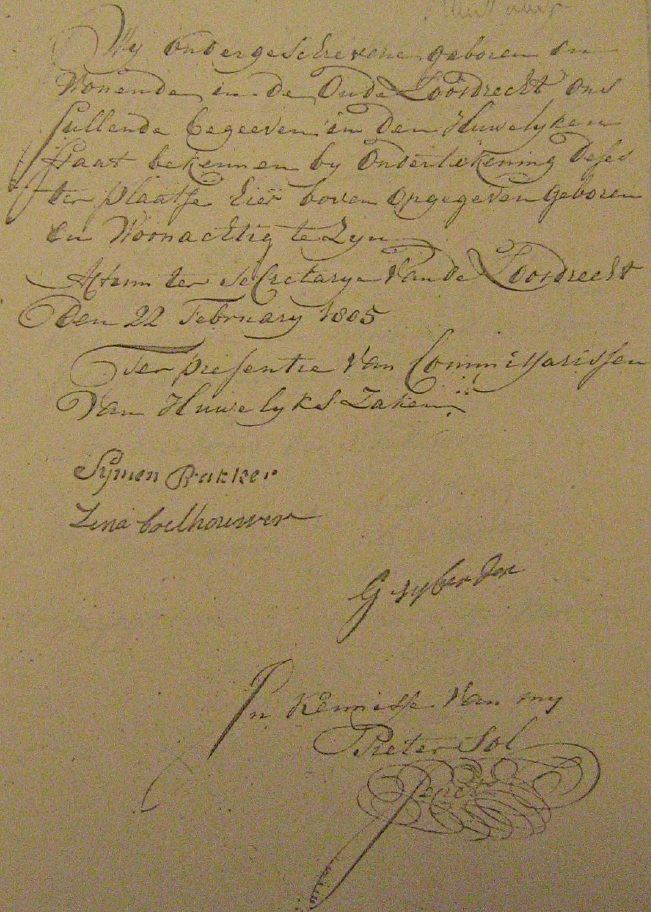 Wy ondergeschrevene geboren en
Wonende in de Oude Loosdrecht ons
sullende begeeven in den Huwelyken
staat bekennen by Ondertekening deses
ter plaatse hier boven opgegeven geboren
en Woonachtig te Zyn
Actum ter Secretarye Van de Loosdrecht
Den 22 February 1805
Ter presentie Van Commissarissen
Van Huwelyks Zaken
Symen Bakker
Zina boelhouwer
G Sybenden
In kennisse Van my
Pieter Sol
Secret